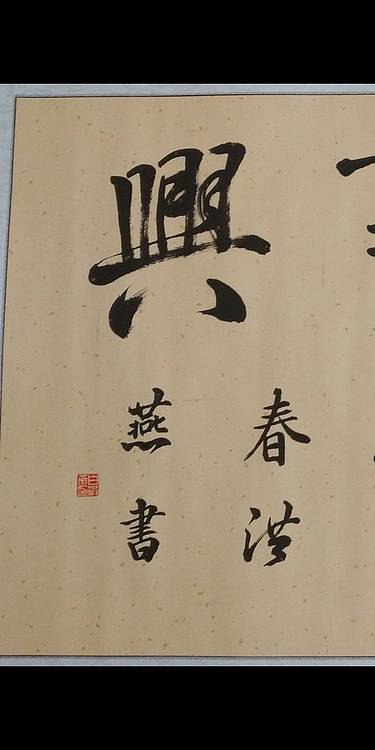 興
春洪
燕書